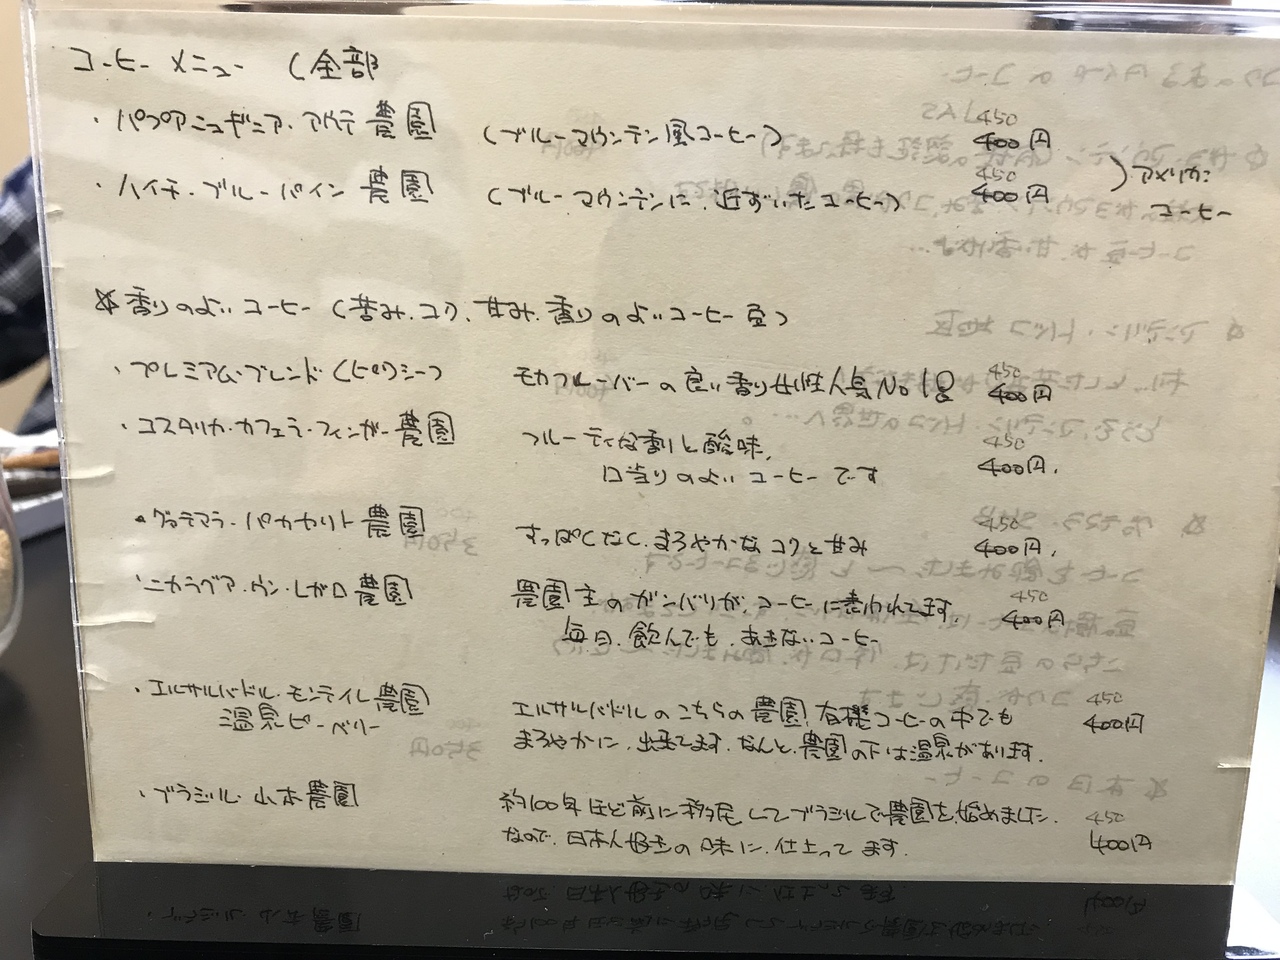 コーヒーメニュー (全部
・パプアニュギニア・アウテ農園 (ブルーマウンテン風コーヒー) 450 400円
・ハイチ・ブルーパイン農園 (ブルーマウンテンに、近ずいたコーヒー) 450 400円 ) アメリカン
コーヒー
☆香りのよいコーヒー (苦み、コク、甘み、香りのよいコーヒー豆)
・プレミアム・ブレンド 450
モカフレーバーの良い香り女性人気No1 400円
・コスタリカ・カフェラ・フィンガー農園 フルーティな香りと酸味、 450 400円、
口当りのよいコーヒーです
・グァテマラ・パカヤリト農園 すっぱくなく、まろやかなコクと甘み 450 400円、
・ニカラグア・ウン・レガロ農園 農園主のガンバリが、コーヒーに表われてます。 450 400円
毎日、飲んでも、あきないコーヒー
・エルサルバドル・モンテイル農園 450
温泉ピーベリー エルサルバドルのこちらの農園、有機コーヒーの中でも 400円
まろやかに、出来てます。なんと、農園の下は温泉があります。
・ブラジル・山本農園 約100年ほど前に移民してブラジルで農園を始めました。 450
なので、日本人好きの味に、仕上ってます。 400円